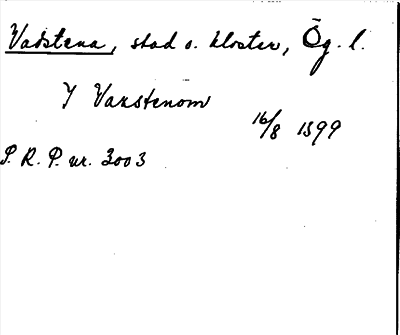 Vadstena, stad o. kloster, Ög. l.
Y Vaxstenom
16/8 1399
S. R. P. nr. 3003